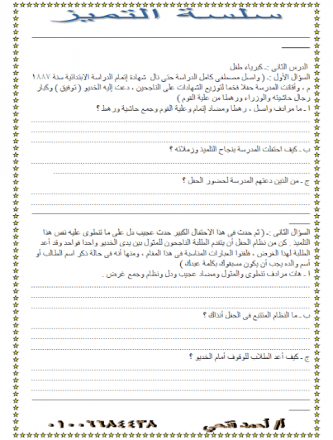 سلسلة التميز
الدرس الثاني :ـ كبرياء طفل
السؤال الأول :ـ ( واصل مصطفى كامل الدراسة حتى نال شهادة إتمام الدراسة الابتدائية سنة ١٨٨٧
م ، وأقامت المدرسة حفلا فخما لتوزيع الشهادات على الناجحين ، دعت إليه الخديو ( توفيق ) وكبار
رجال حاشيته والوزراء ورهطا من علية القوم )
أ - ما مرادف واصل ، رهطا ومضاد إتمام وعلية القوم وجمع حاشية ورهط ؟
ب - كيف احتفلت المدرسة بنجاح التلميذ وزملائه ؟
ج - من الذين دعتهم المدرسة لحضور الحفل ؟
السؤال الثاني :ـ ( ثم حدث في هذا الاحتفال الكبير حدث عجيب دل على ما تنطوي عليه نفس هذا
التلميذ . كان من نظام الحفل أن يتقدم الطلبة الناجحون للمثول بين يدى الخديو واحدا فواحد وقد أعد
الطلبة لهذا الغرض ، فلقنوا العبارات المناسبة في هذا المقام ، ومنها أنه في حالة ذكر اسم الطالب أو
اسم والده يجب أن يكون مسبوقا بكلمة عبدك )
أ - هات مرادف تنطوي والمثول ومضاد عجيب ودل ونظام وجمع غرض .
ب - ما النظام المتبع في الحفل آنذاك ؟
ج - كيف أعد الطلاب للوقوف أمام الخديو ؟
أ/ أحمد فتحي ٠١٠٠٦٦٨٤٤٣٨